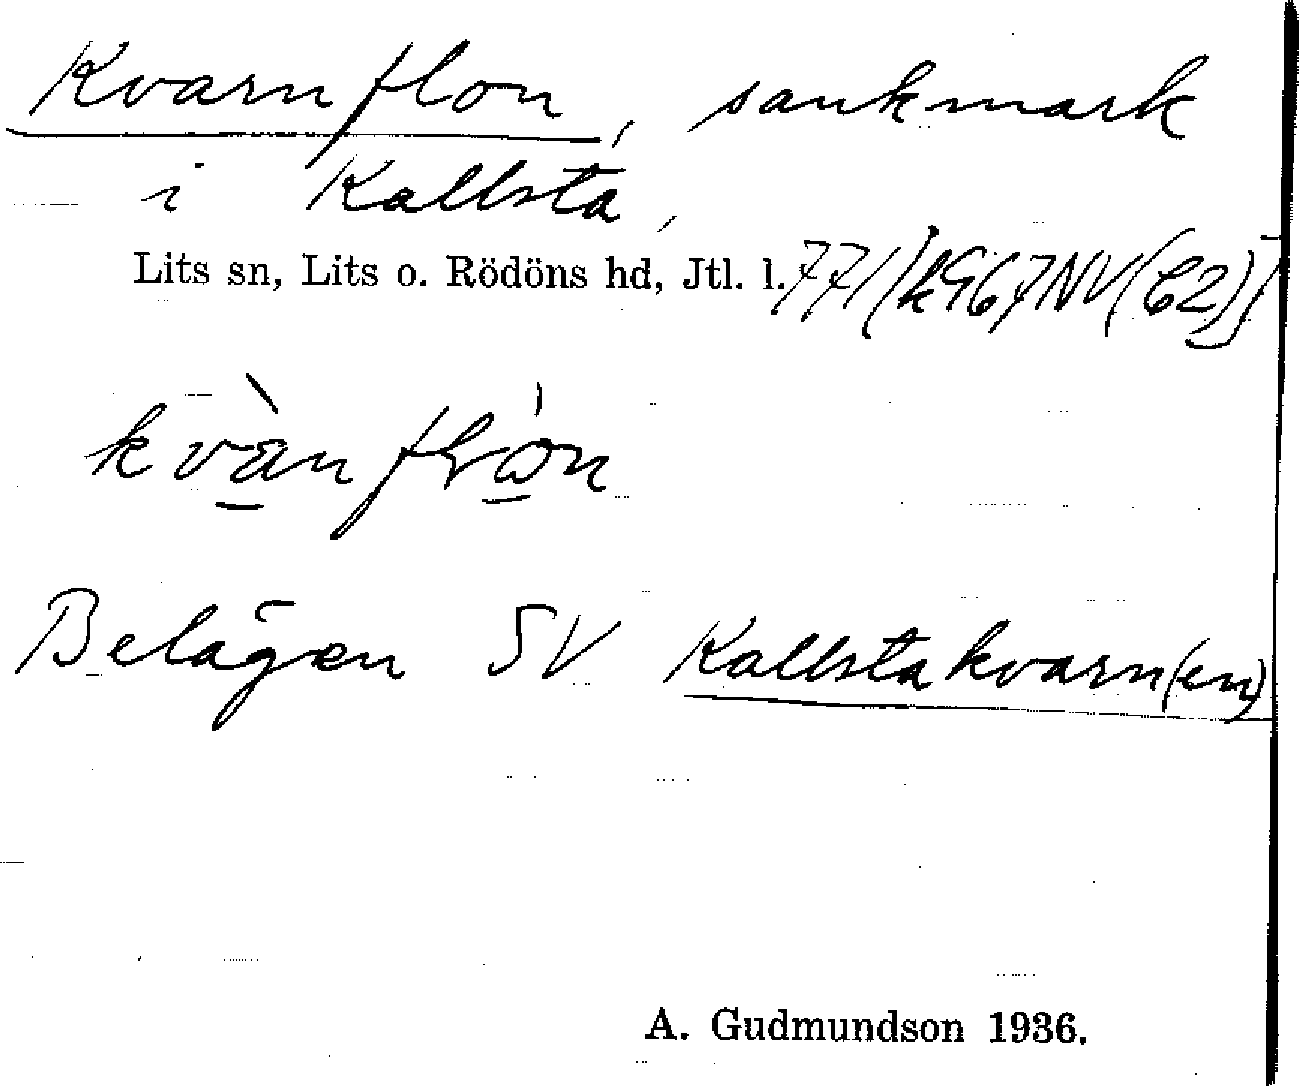 Kvarnflon, sankmark
i Kallsta,
Lits sn, Lits o. Rödöns hd, Jtl. l.
Belägen SV Kallstakvarn(en)
A. Gudmundson 1936.